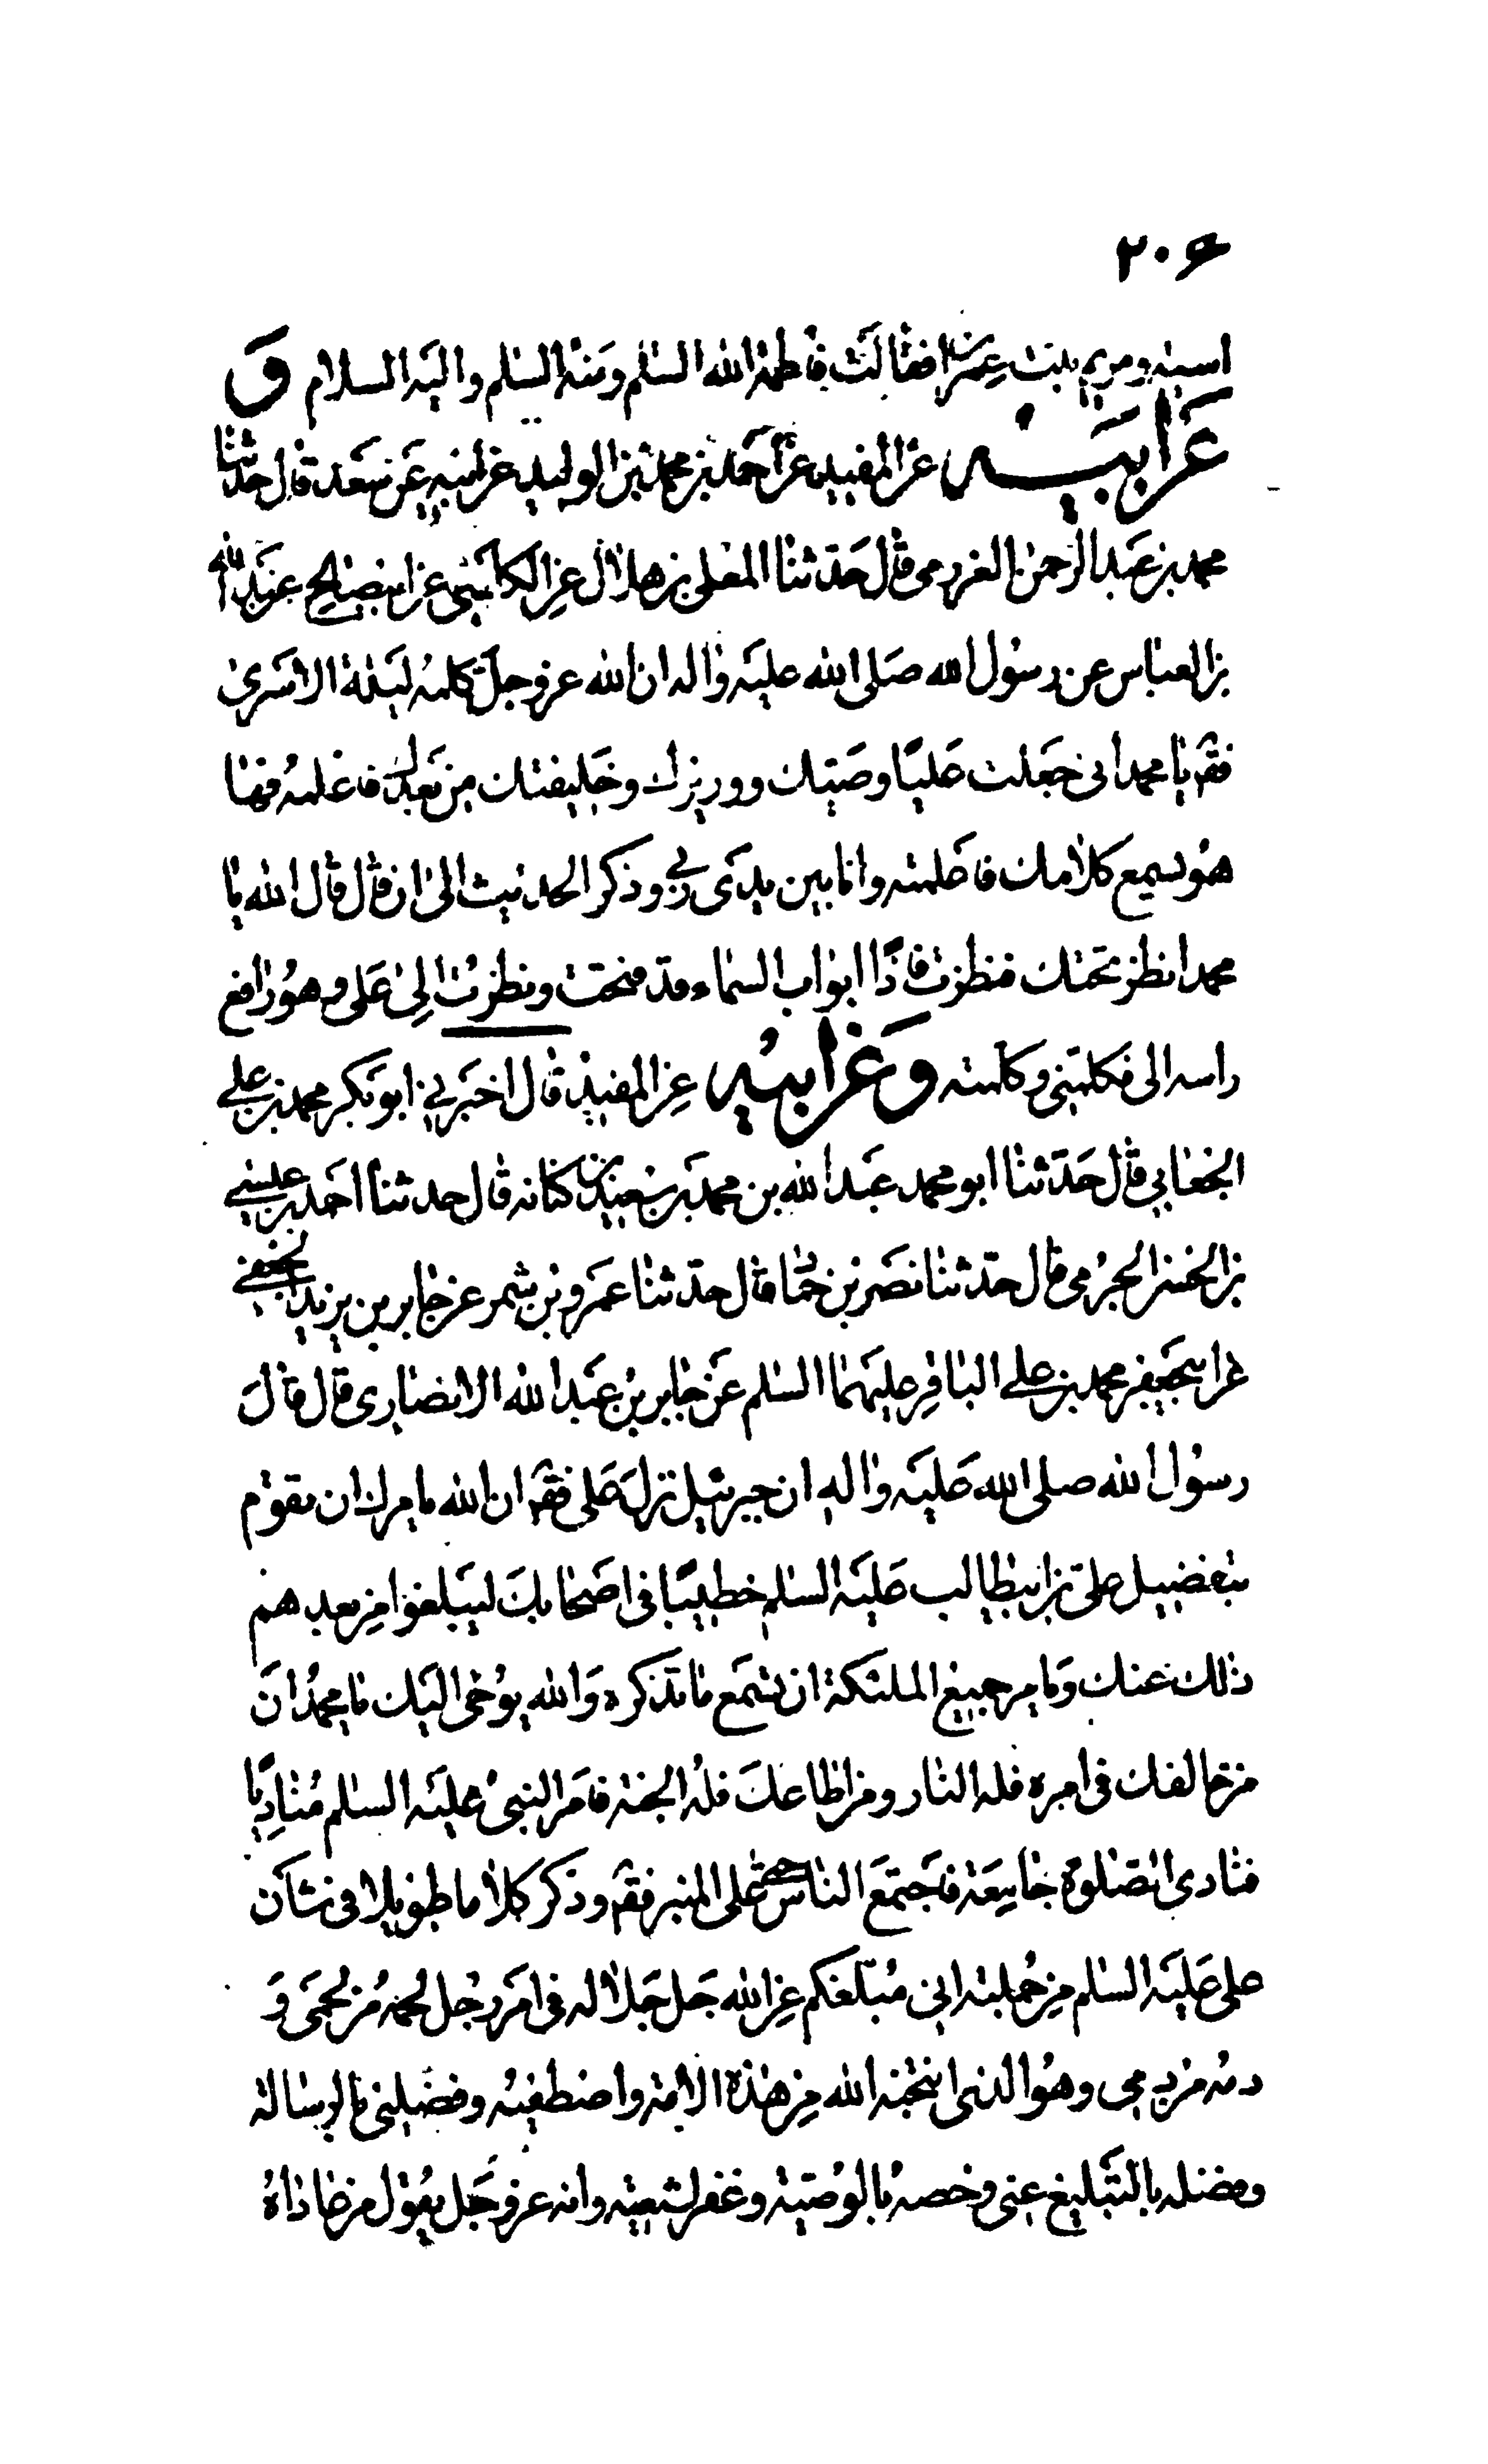 ٢٠۶
اسيه ومريم بنت عمران فقالت فاطمة الله السلم ومنه السلم واليه السلام و
عن ابيه عن المفيد عن احمد بن محمد بن الوليد عن ابيه عن سعد قال حدثنا
محمد بن عبد الرحمن العرزمى قال حدثنا المعلى بن هلال عن الكلبى عن ابيصالح عن عبد الله
بن العباس عن رسول الله صلى الله عليه واله ان الله عز وجل كلمه ليلة الاسرى
فقم يا محمد انى جعلت عليا وصيك ووزيرك وخليفتك من بعدك فاعلمه فها
هو يسمع كلامك فاعلمته وانا بين يدى ربي وذكر الحديث الى ان قال قال الله يا
محمد انظر تحتك فنظرت فاذا ابواب السماء قد فتحت ونظرت الى على وهو رافع
راسه الى فكلمنى وكلمته وعن ابيه عن المفيد قال اخبرنى ابو بكر محمد بن على
الجعابي قال حدثنا ابو محمد عبد الله بن محمد بن سعيد بن كنانه قال حدثنا احمد بن عيسى
بن الحسن الجرمى قال حدثنا نصر بن حماد قال حدثنا عمرو بن شمر عن جابر بن يزيد الجعفى
عن ابيجعفر محمد بن على الباقر عليهما السلم عن جابر بن عبد الله الانصارى قال قال
رسول الله صلى الله عليه واله ان جبرئيل نزل على فقم ان الله يامرك ان تقوم
بتفضيل على بن ابيطالب عليه السلم خطيبا فى اصحابك ليبلغوا من بعدهم
ذلك عنك ويامر جميع الملئكة ان تسمع ما تذكره والله يوحى اليك يا محمد ان
من خالفك فى امره فله النار ومن اطاعك فله الجنة فامر النبى عليه السلم مناديا
فنادى الصلوة جامعة فاجتمع الناس على المنبر فقم وذكر كلاما طويلا فى شان
على عليه السلم من جملته انى مبلغكم عن الله جل جلاله فى امر رجل لحمه من لحمى و
دمه من دمى وهو الذى انتجبه الله من هذه الامة واصطفيه وفضلنى بالرسالة
وفضله بالتبليغ عنى وخصه بالوصية وغفر لشيعته وانه عز وجل يقول من عاداه